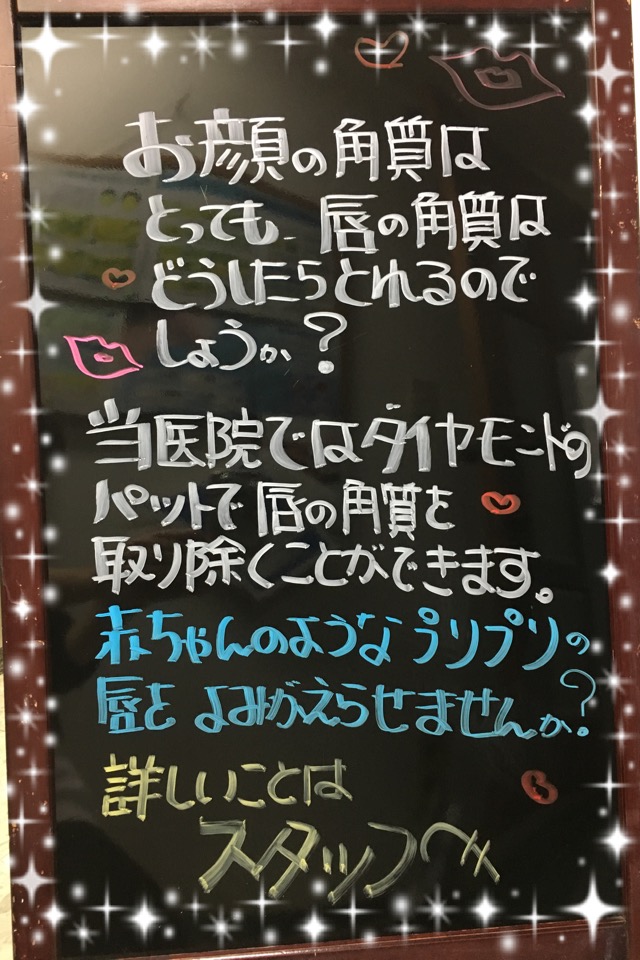 お顔の角質は
とっても、唇の角質は
どうしたらとれるので
しょうか？
当医院ではダイヤモンドの
パットで唇の角質を
取り除くことができます。
赤ちゃんのようなプリプリの
唇をよみがえらせませんか？
詳しいことは
スタッフへ